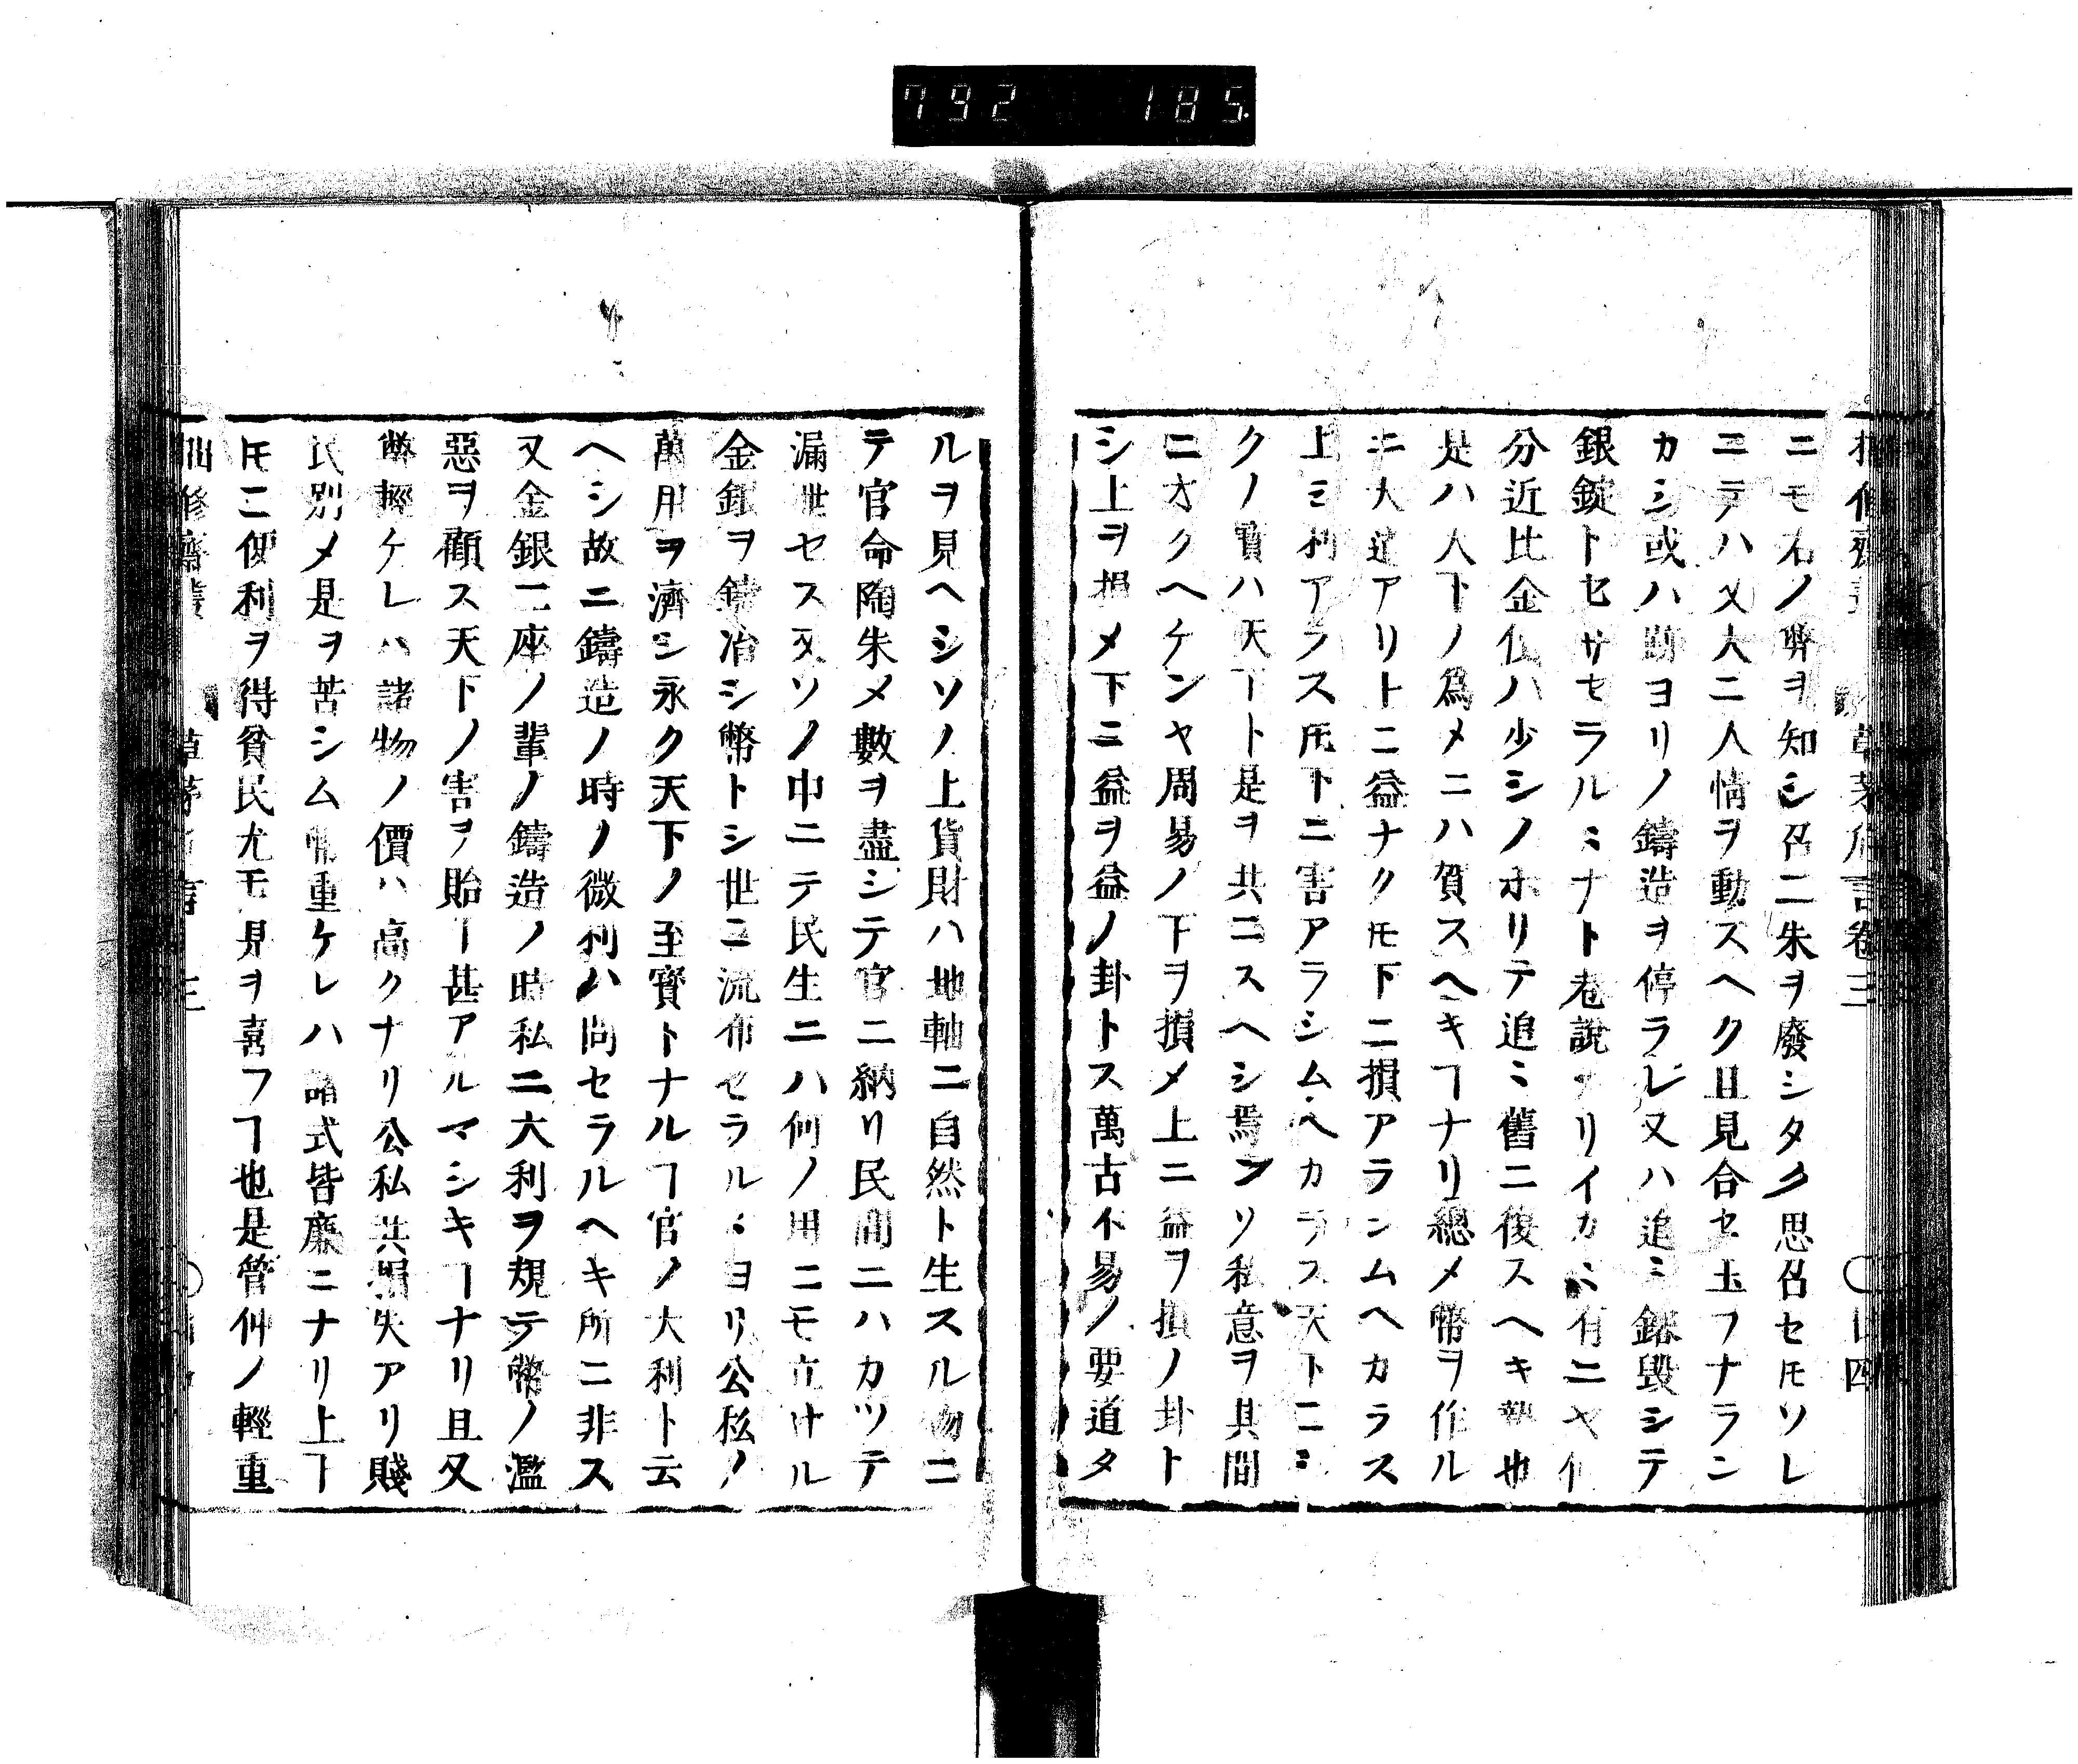 792 185
草茅危言卷三
ニモ右ノ弊ヲ知シ召二朱ヲ廢シタク思召セ𪜈ソレ
ニテハ又大ニ人情ヲ動スヘク且見合セ玉フナラン
カシ或ハ前ヨリノ鑄造ヲ停ラレ又ハ追ミ鎔毀シテ
銀錠トセサセラルミナト巷說アリイカミ有ニヤ何
分近比金位ハ少シノホリテ追ミ舊ニ復スヘキ勢也
是ハ人下ノ爲メニハ賀スヘキヿナリ總メ幣ヲ作ル
ニ大道アリトニ益ナク𪜈下ニ損アラシムヘカラス
上ミ利アラス𪜈下ニ害アラシムヘカラス天下ニミ
クノ寶ハ天下ト是ヲ共ニスヘシ焉ンソ私意ヲ其間
ニオクヘケンヤ周易ノ下ヲ損メ上ニ益ヲ損ノ卦ト
シ上ヲ損メ下ニ益ヲ益ノ卦トス萬古不易ノ要道タ
ルヲ見ヘシソノ上貨財ハ地軸ニ自然ト生スル物ニ
テ官命陶朱メ數ヲ盡シテ官ニ納リ民間ニハカツテ
漏泄セス又ソノ巾ニテ民生ニハ何ノ用ニモ立ケル
金銀ヲ鑄冶シ幣トシ世ニ流布セラルミヨリ公私ノ
萬用ヲ濟シ永ク天下ノ至寶トナルヿ官ノ大利ト云
ヘシ故ニ鑄造ノ時ノ微利ハ問セラルヘキ所ニ非ス
又金銀二座ノ輩ノ鑄造ノ時私ニ大利ヲ規テ幣ノ濫
惡ヲ顧ス天下ノ害ヲ貽ヿ甚アルマシキヿナリ且又
幣輕ケレハ諸物ノ價ハ高クナリ公私共損失アリ賤
民別メ是ヲ苦シム幣重ケレハ諸式皆廉ニナリ上下
𪜈ニ便利ヲ得貧民尤モ見ヲ喜フヿ也是管仲ノ輕重